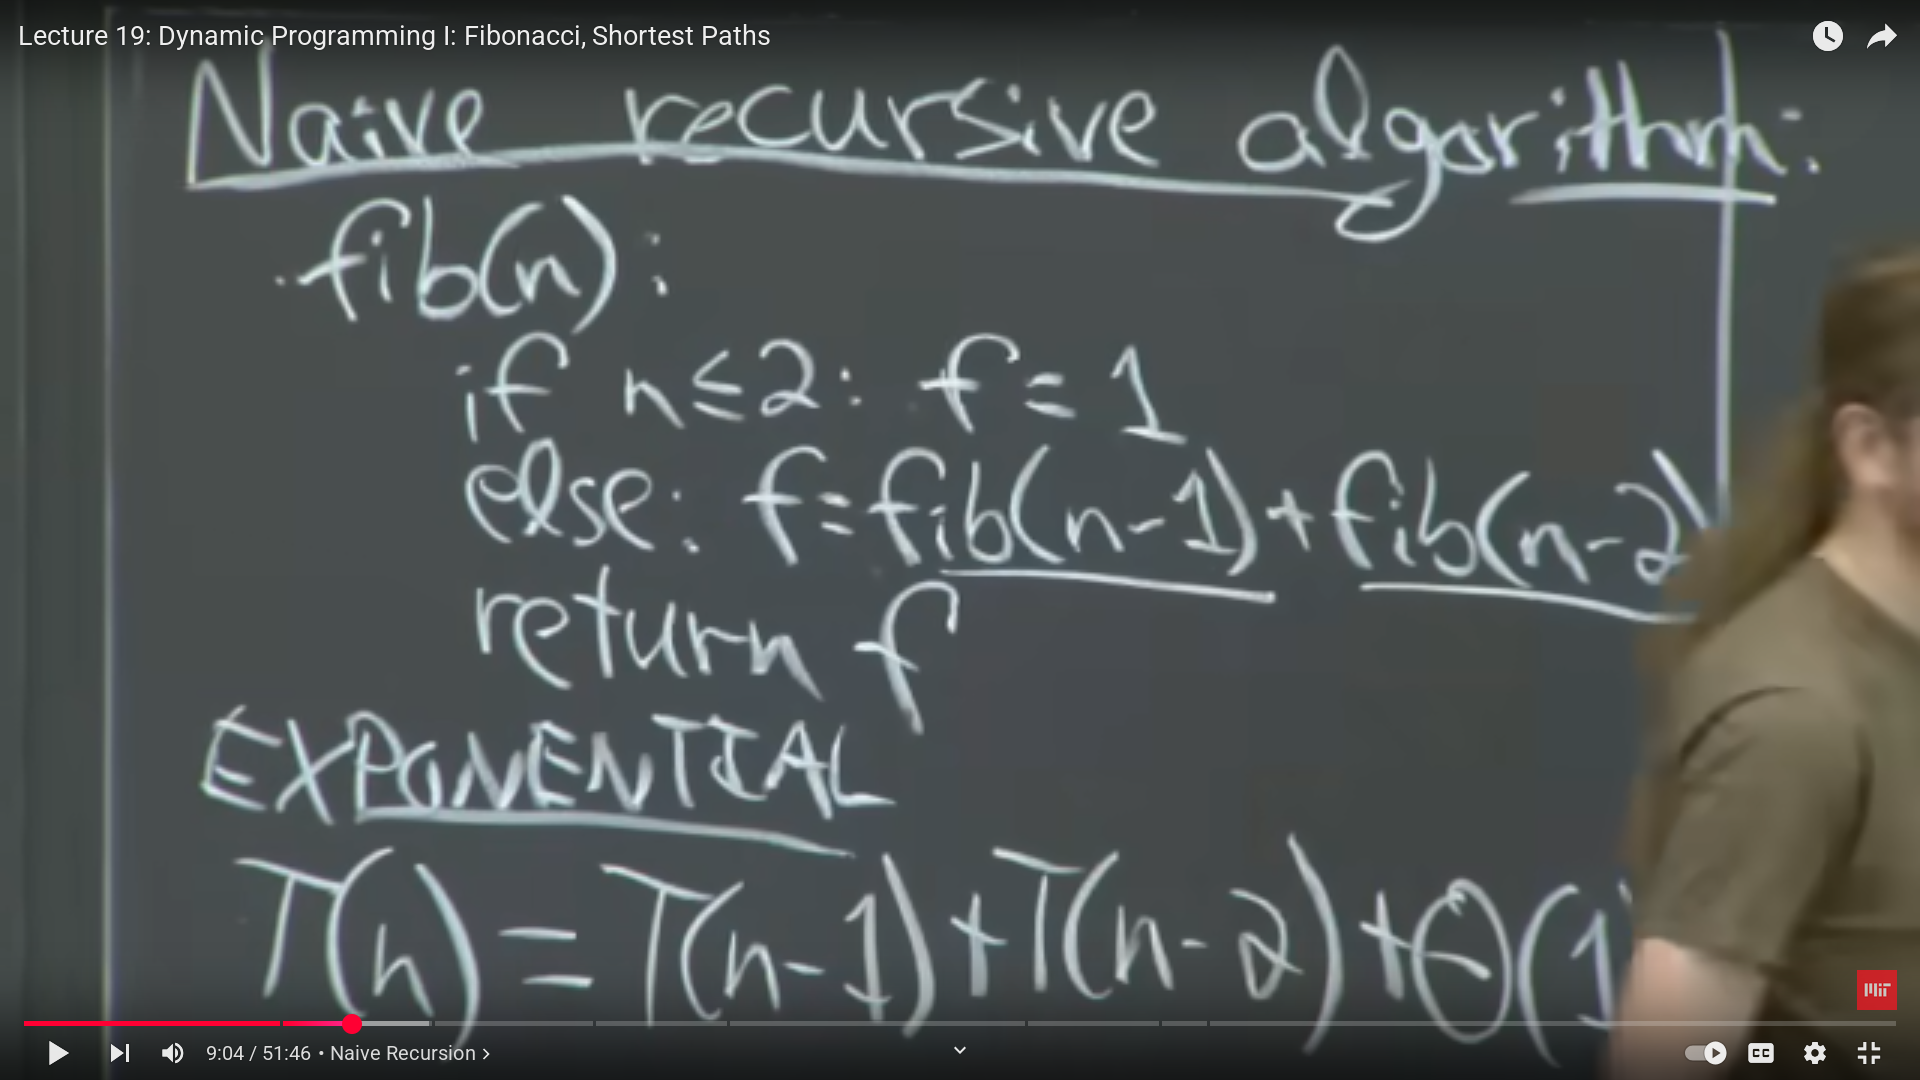 Lecture 19: Dynamic Programming I: Fibonacci, Shortest Paths
Naive recursive algorithm:
fib(n):
if n≤2: f=1
else: f=fib(n-1)+fib(n-2)
return f
EXPONENTIAL
T(n)=T(n-1)+T(n-2)+Θ(1)
MIT
9:04 / 51:46 • Naive Recursion
CC